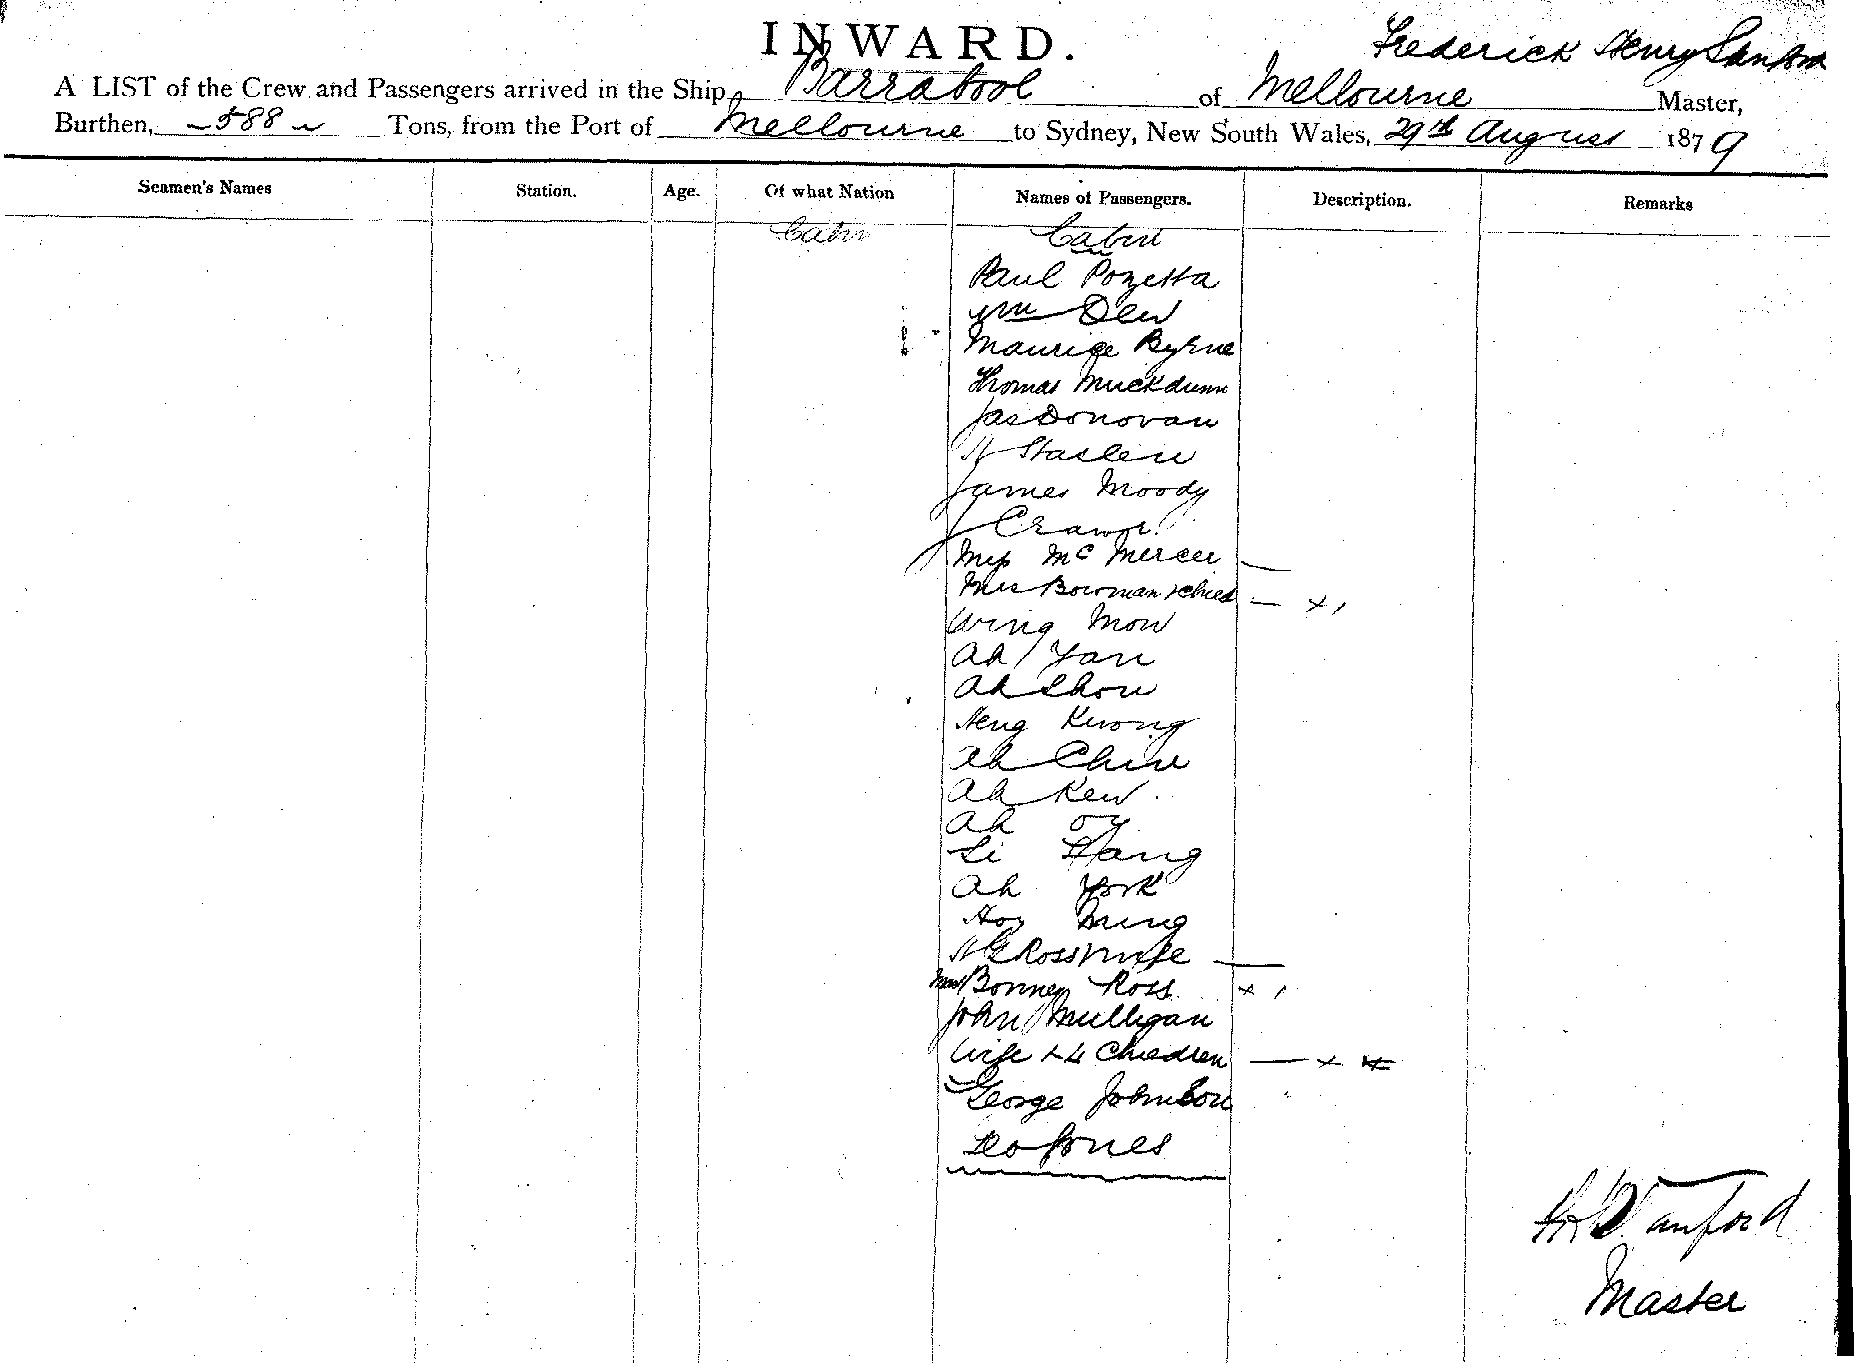 INWARD.
Frederick Henry
A LIST of the Crew and Passengers arrived in the Ship Barrabool of Melbourne Master,
Burthen, 588 Tons, from the Port of Melbourne to Sydney, New South Wales, 29th August 1879
Seamen's Names Station. Age. Of what Nation Names of Passengers. Description. Remarks
Cabin Cabin
Paul Pozetta
Wm Dew
Maurice Byrne
Thomas Muckdunn
Jas Donovan
H
James Moody
J
Miss Mc Mercer —
Mrs Bowman & child — x
Wing Mow
Ah Yan
Ah Chow
Heng Kwong
Ah Chin
Ah Kew
Ah Oy
Li
Ah York
Ming
Ross wife —
Bonney Ross x
John Mulligan
Wife & 4 Children — x
George Johnson
Jones
Master